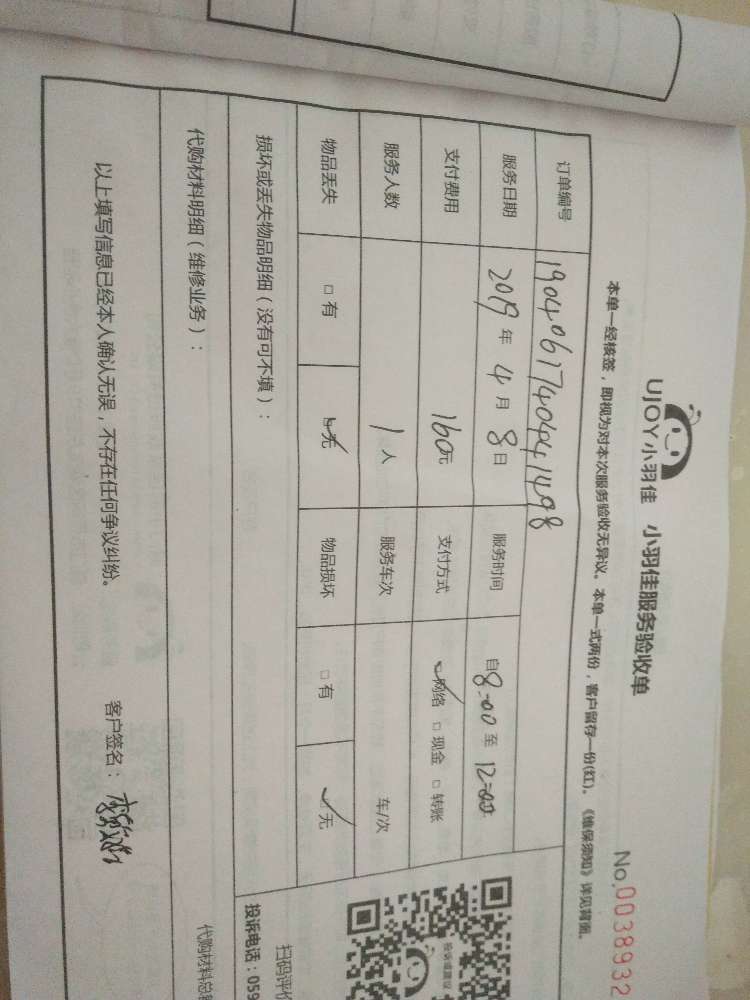 UJOY小羽佳 小羽佳服务验收单
No.0038932
本单一经核签，即视为对本次服务验收无异议。本单一式两份，客户留存一份(红)。《维保须知》详见背面。
订单编号 1904061740441498
服务日期 2019年4月8日 服务时间 自8:00至12:00
支付费用 160元 支付方式 网络 现金 转账
服务人数 1人 服务车次 车/次
物品丢失 有 无 物品损坏 有 无
损坏或丢失物品明细（没有可不填）：
代购材料明细（维修业务）：
以上填写信息已经本人确认无误，不存在任何争议纠纷。 客户签名：
扫码评价
投诉电话：059
代购材料总